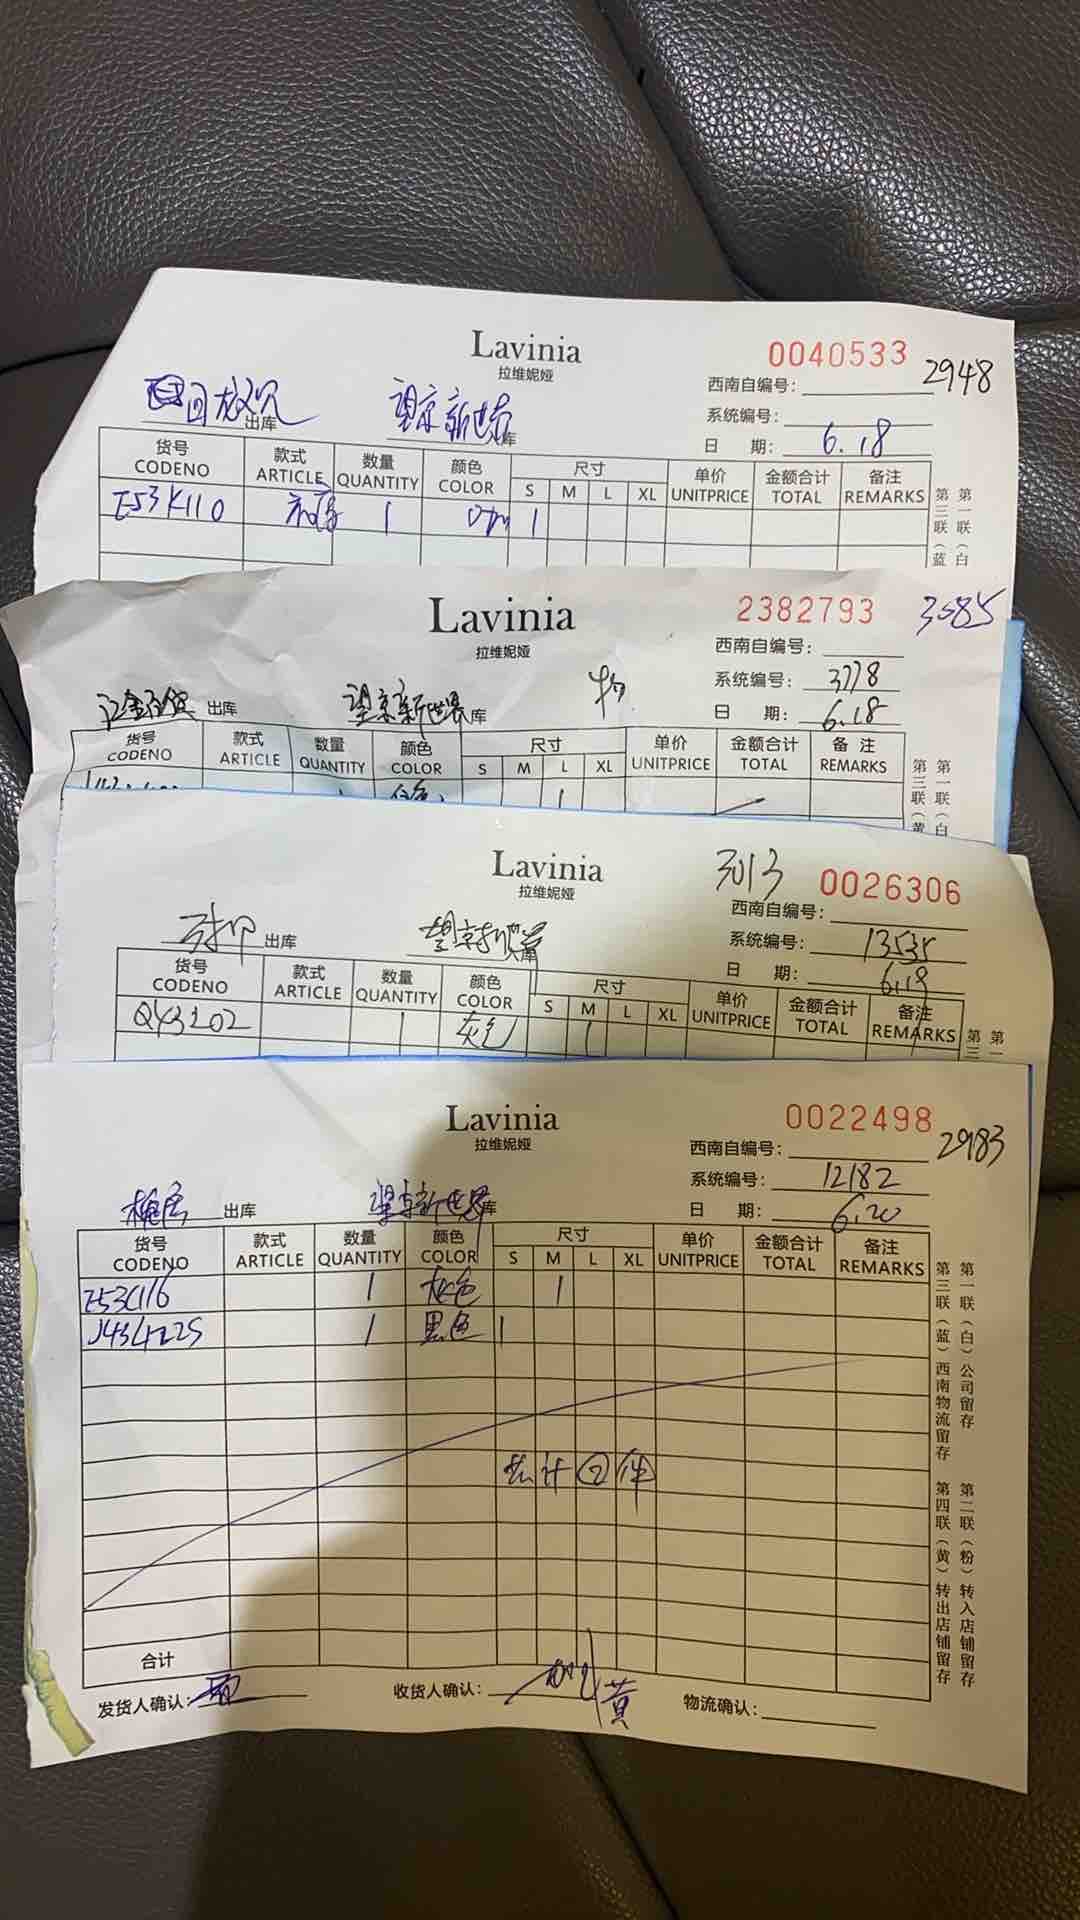 Lavinia
拉维妮娅
0040533
2948
西南自编号：
系统编号：
出库 望京新世界 库
日 期： 6.18
货号 款式 数量 颜色 尺寸 单价 金额合计 备注
CODENO ARTICLE QUANTITY COLOR S M L XL UNITPRICE TOTAL REMARKS
E53K110 1 1
第三联（蓝 第一联（白
Lavinia
拉维妮娅
2382793
3085
西南自编号：
系统编号： 3778
出库 望京新世界 库
日 期： 6.18
货号 款式 数量 颜色 尺寸 单价 金额合计 备注
CODENO ARTICLE QUANTITY COLOR S M L XL UNITPRICE TOTAL REMARKS
白色 1
第三联（黄 第一联（白
Lavinia
拉维妮娅
3013
0026306
西南自编号：
系统编号： 13535
出库 库
日 期： 6.19
货号 款式 数量 颜色 尺寸 单价 金额合计 备注
CODENO ARTICLE QUANTITY COLOR S M L XL UNITPRICE TOTAL REMARKS
Q43202 1 灰色 1
第三 第一
Lavinia
拉维妮娅
0022498
2983
西南自编号：
系统编号： 12182
出库 望京新世界 库
日 期： 6.20
货号 款式 数量 颜色 尺寸 单价 金额合计 备注
CODENO ARTICLE QUANTITY COLOR S M L XL UNITPRICE TOTAL REMARKS
E53C116 1 灰色 1
J434225 1 黑色 1
共计②件
合计
发货人确认： 收货人确认： 黄 物流确认：
第一联（白）公司留存 第二联（粉）转入店铺留存
第三联（蓝）西南物流留存 第四联（黄）转出店铺留存